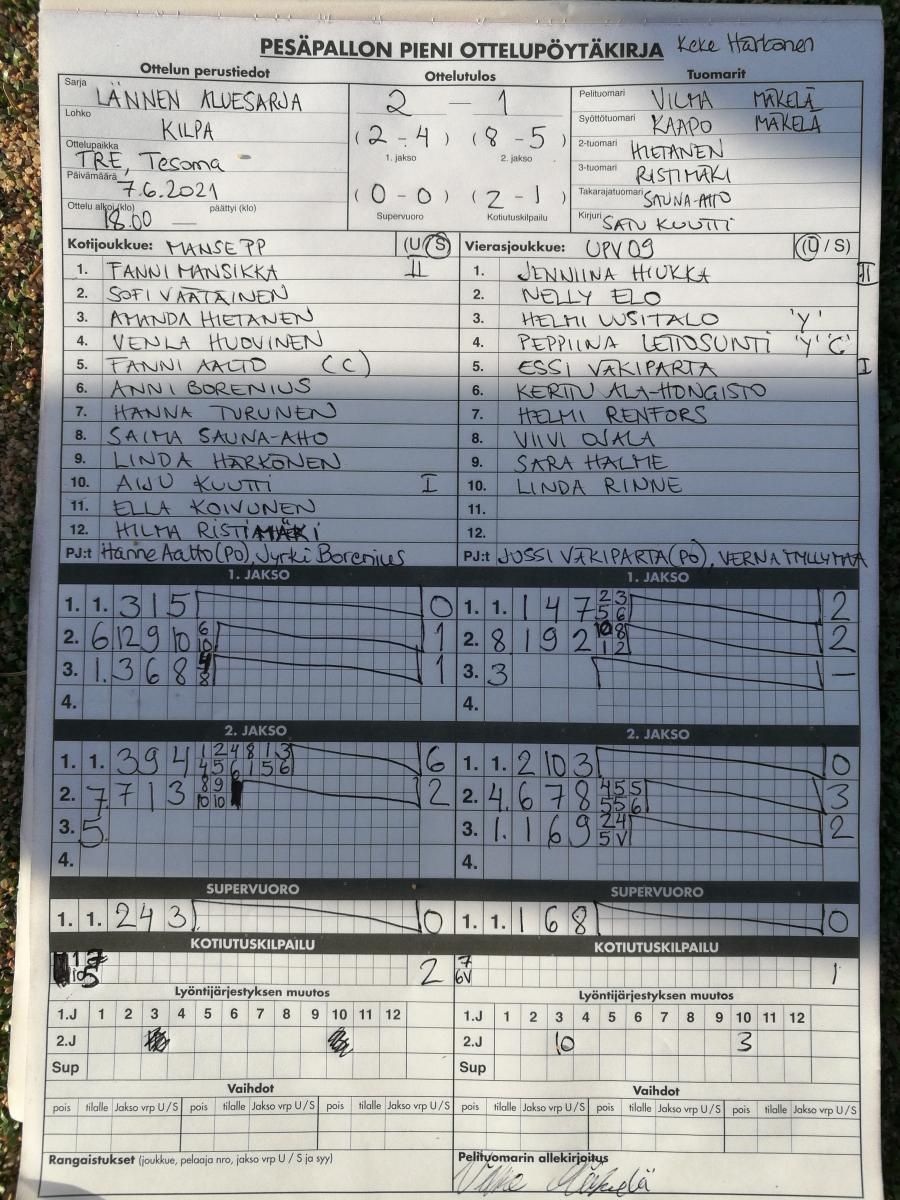 PESÄPALLON PIENI OTTELUPÖYTÄKIRJA Keke Härkönen
Ottelun perustiedot
Sarja LÄNNEN ALUESARJA
Lohko KILPA
Ottelupaikka TRE, Tesoma
Päivämäärä 7.6.2021
Ottelu alkoi (klo) 18.00 päättyi (klo) —
Ottelutulos
2 — 1
(2 - 4) (8 - 5)
1. jakso 2. jakso
(0 - 0) (2 - 1)
Supervuoro Kotiutuskilpailu
Tuomarit
Pelituomari VILMA MÄKELÄ
Syöttötuomari KAAPO MÄKELÄ
2-tuomari HIETANEN
3-tuomari RISTIMÄKI
Takarajatuomari SAUNA-AHO
Kirjuri SATU KUUTTI
Kotijoukkue: MANSE PP (U/S)
1. FANNI MANSIKKA II
2. SOFI VÄÄTÄINEN
3. AMANDA HIETANEN
4. VENLA HUOVINEN
5. FANNI AALTO (C)
6. ANNI BORENIUS
7. HANNA TURUNEN
8. SAIMA SAUNA-AHO
9. LINDA HÄRKÖNEN
10. AIJU KUUTTI I
11. ELLA KOIVUNEN
12. HILMA RISTIMÄKI
PJ:t Hanne Aalto (PO), Jyrki Borenius
Vierasjoukkue: UPV 09 (U/S)
1. JENNIINA HIUKKA II
2. NELLY ELO
3. HELMI UUSITALO 'Y'
4. PEPPIINA LEHTOSUNTI 'Y' 'C'
5. ESSI VÄKIPARTA I
6. KERTTU ALA-HONGISTO
7. HELMI RENFORS
8. VIIVI OJALA
9. SARA HALME
10. LINDA RINNE
11.
12.
PJ:t JUSSI VÄKIPARTA (PO), VERNA MYLLYMAA
1. JAKSO
1. 1. 3 1 5 0
2. 6 12 9 10 6 10 1
3. 1. 3 6 8 4 8 1
4.
1. JAKSO
1. 1. 1 4 7 2 3 5 6 2
2. 8 1 9 2 10 8 1 2 2
3. 3 —
4.
2. JAKSO
1. 1. 3 9 4 1 2 4 8 1 3 4 5 6 1 5 6 6
2. 7. 7 1 3 8 9 10 10 2
3. 5.
4.
2. JAKSO
1. 1. 2 10 3 0
2. 4. 6 7 8 4 5 5 5 5 6 3
3. 1. 1 6 9 2 4 5 V 2
4.
SUPERVUORO
1. 1. 2 4 3 0
SUPERVUORO
1. 1. 1 6 8 0
KOTIUTUSKILPAILU
1 7 10 5 2
KOTIUTUSKILPAILU
7 6V 1
Lyöntijärjestyksen muutos
1.J 1 2 3 4 5 6 7 8 9 10 11 12
2.J
Sup
Lyöntijärjestyksen muutos
1.J 1 2 3 4 5 6 7 8 9 10 11 12
2.J 10 3
Sup
Vaihdot
pois tilalle Jakso vrp U/S pois tilalle Jakso vrp U/S pois tilalle Jakso vrp U/S
Vaihdot
pois tilalle Jakso vrp U/S pois tilalle Jakso vrp U/S pois tilalle Jakso vrp U/S
Rangaistukset (joukkue, pelaaja nro, jakso vrp U / S ja syy)
Pelituomarin allekirjoitus
Vilma Mäkelä